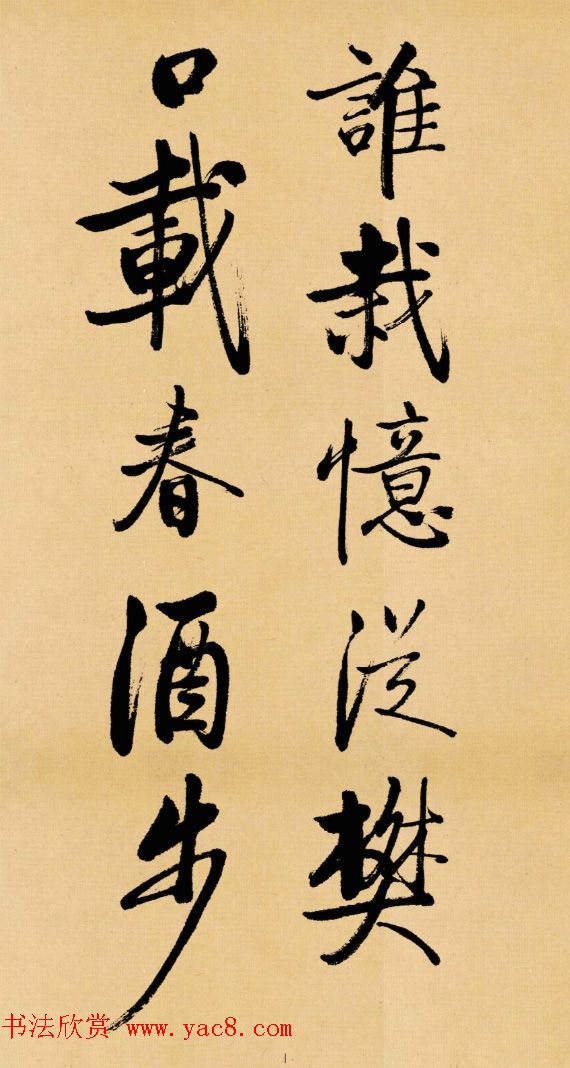 誰栽憶從樊
口載春酒步
书法欣赏 www.yac8.com